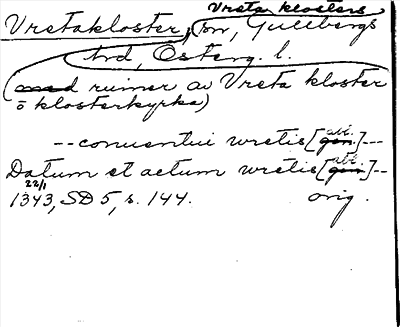 Vreta klosters
Vretakloster, sn, Gullbergs
hd, Österg. l.
(med ruiner av Vreta kloster
o klosterkyrka)
-- conuentui wretis [abl.] --
Datum et actum wretis [abl.] --
22/1
1343, SD 5, s. 144. orig.